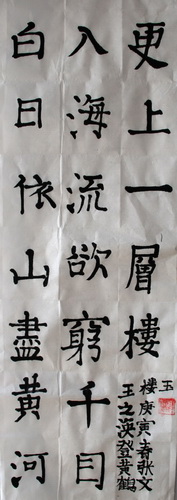 白日依山盡黄河
入海流欲窮千目
更上一層樓
王之渙登黄鶴
樓庚寅春文
玉